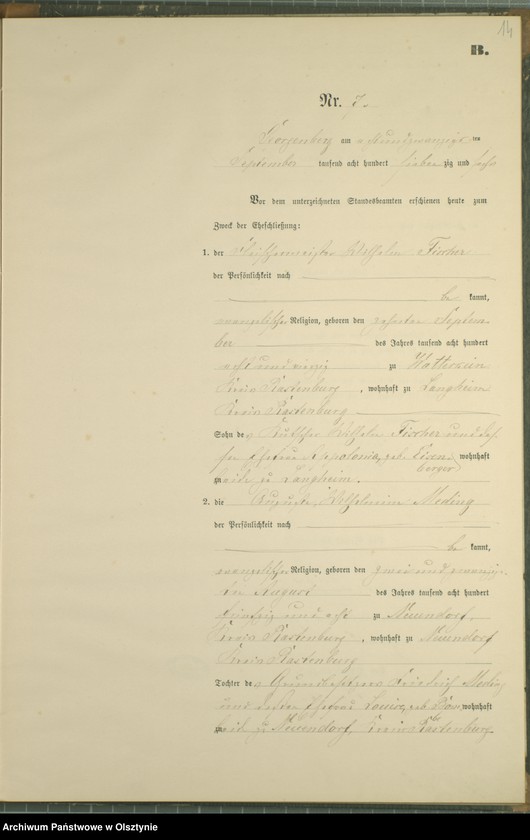 14
B.
Nr. 7.
am achtundzwanzigsten
September tausend acht hundert sieben zig und acht
Vor dem unterzeichneten Standesbeamten erschienen heute zum
Zweck der Eheschließung:
1. der Wilhelm Fischer
der Persönlichkeit nach
be kannt,
evangelischer Religion, geboren den zehnten Septem
ber des Jahres tausend acht hundert
acht und vierzig zu
Kreis Rastenburg, wohnhaft zu Langheim
Kreis Rastenburg
Sohn des Wilhelm Fischer und des
sen Ehefrau geb. Eisen wohnhaft
berger
beide zu Langheim.
2. die Auguste, Wilhelmine Meding
der Persönlichkeit nach
be kannt,
evangelischer Religion, geboren den zwei und zwanzig
sten August des Jahres tausend acht hundert
fünfzig und acht zu Neuendorf,
Kreis Rastenburg, wohnhaft zu Neuendorf
Kreis Rastenburg
Tochter des Grundbesitzers Friedrich Meding
und dessen Ehefrau Louise, geb. wohnhaft
beide zu Neuendorf, Kreis Rastenburg.
Archiwum Państwowe w Olsztynie